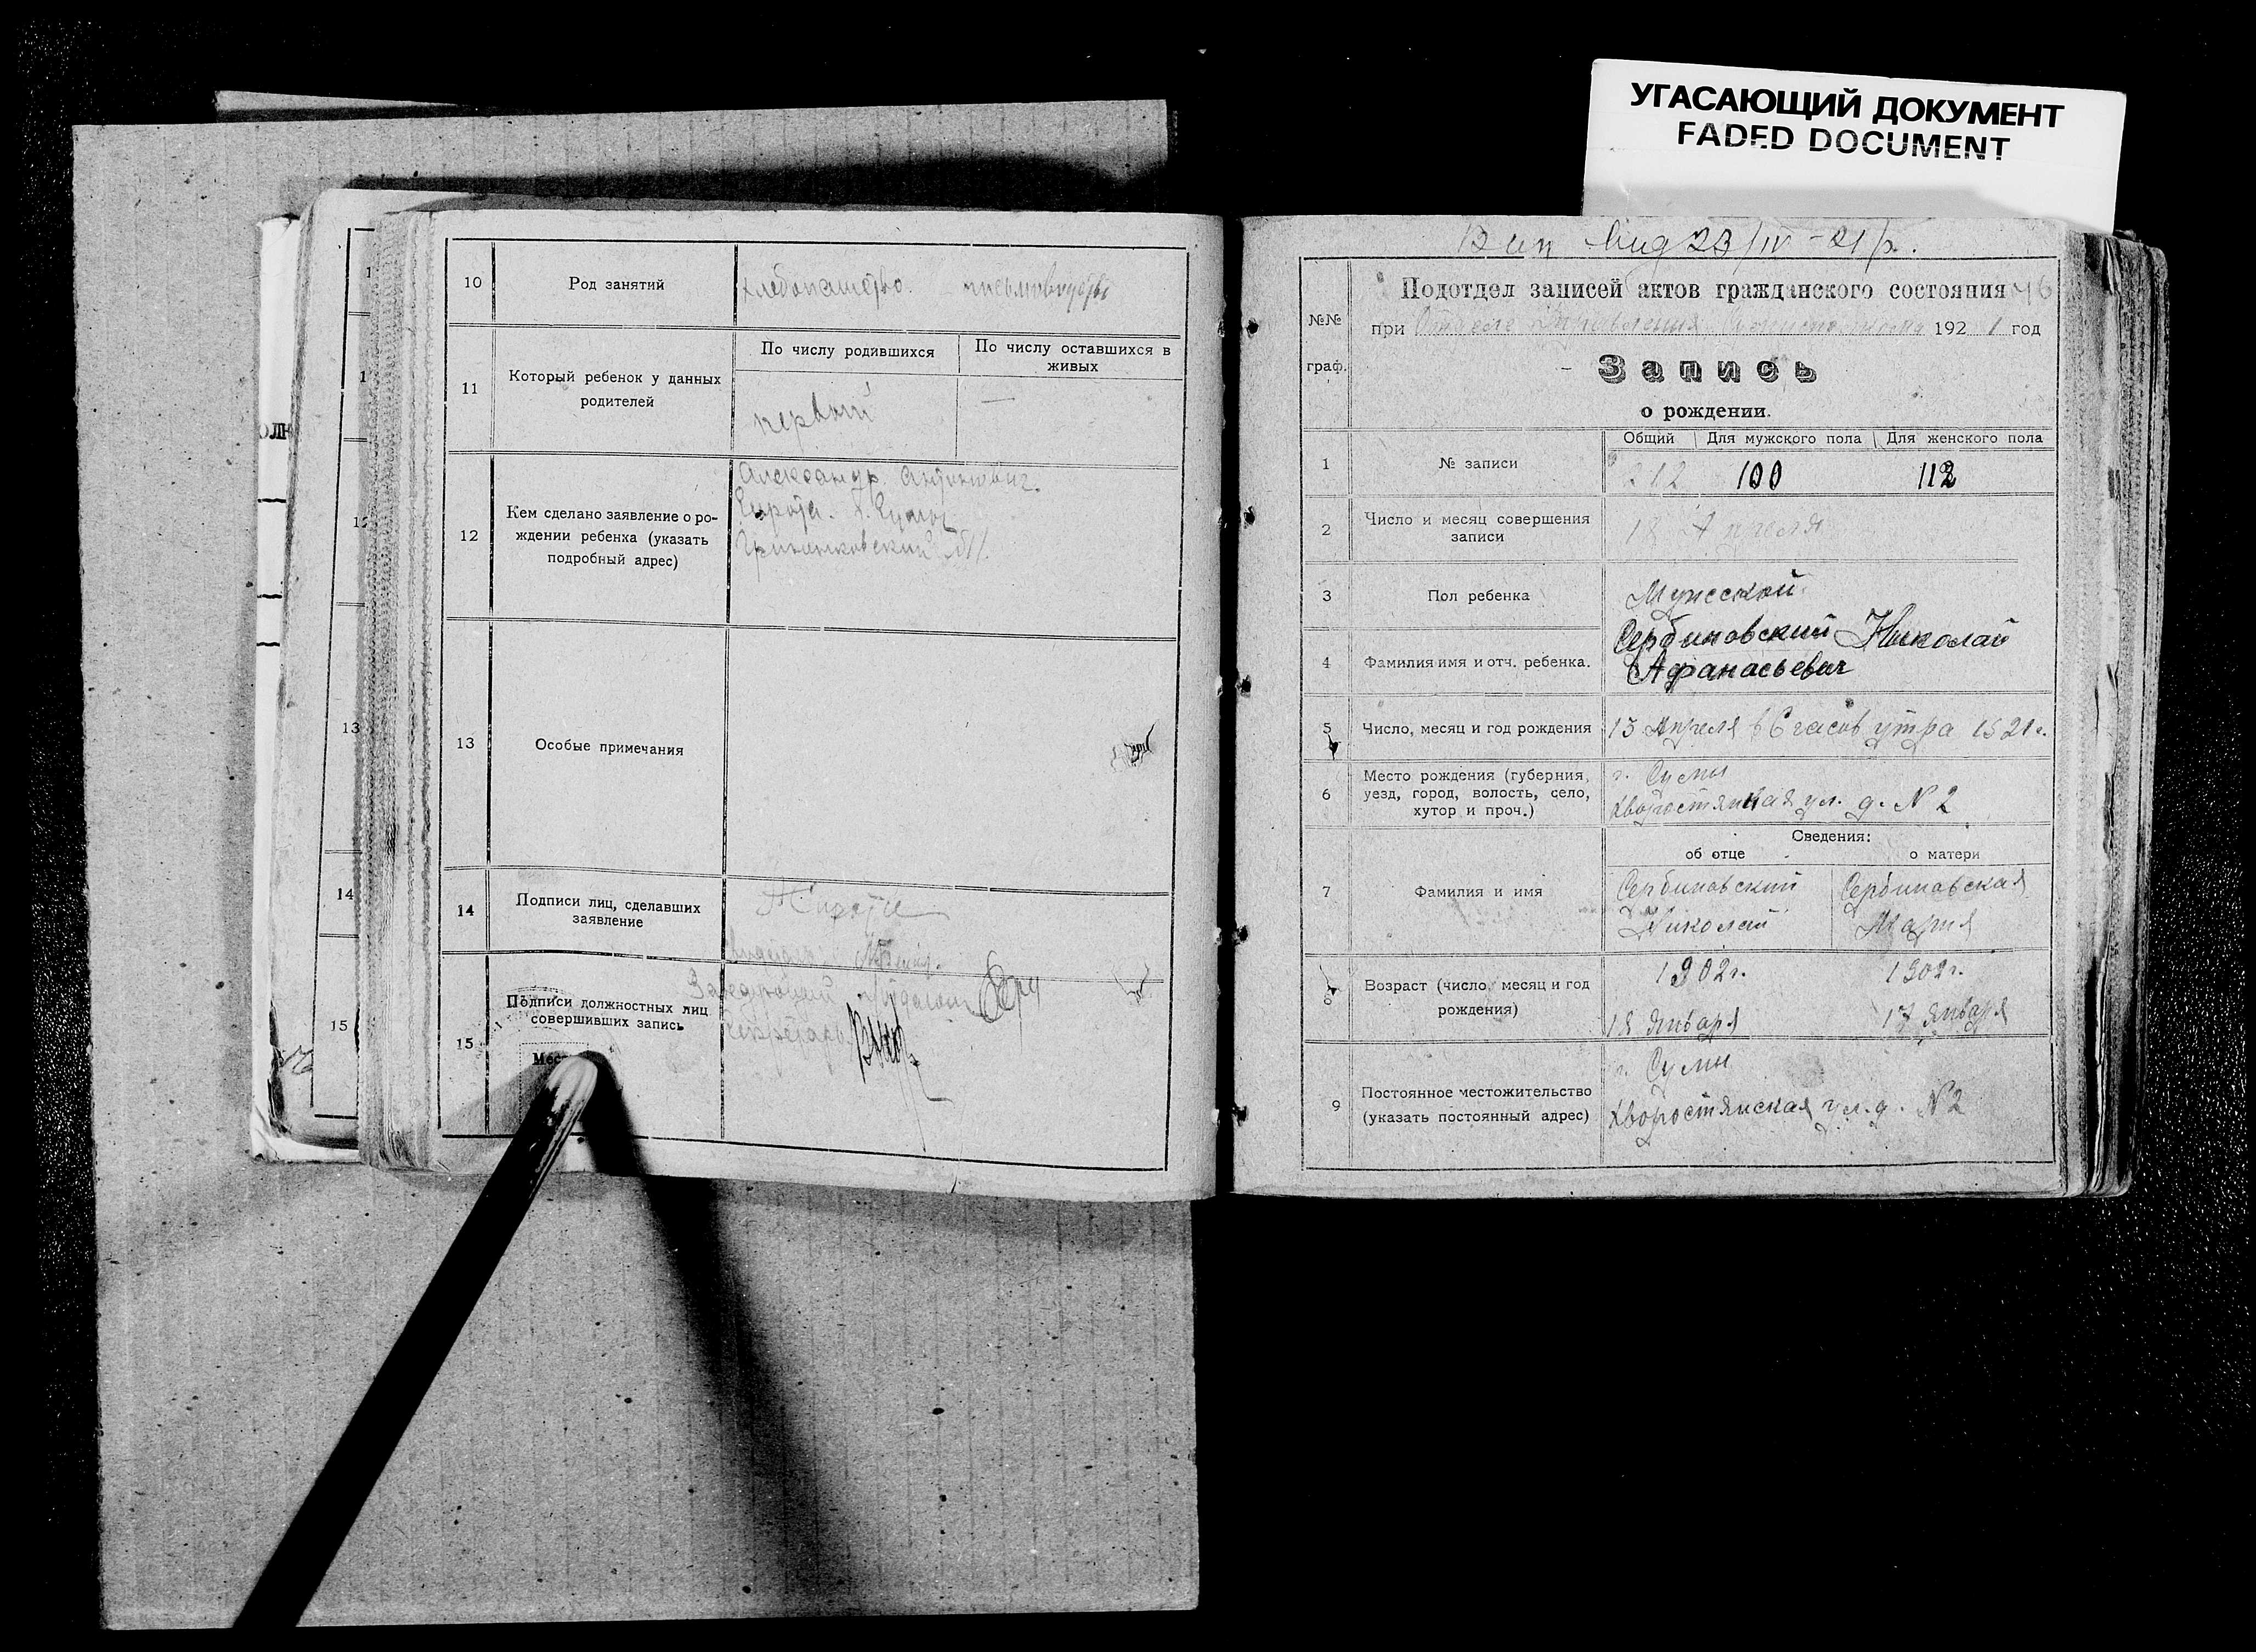 УГАСАЮЩИЙ ДОКУМЕНТ
FADED DOCUMENT
10
Род занятий
хлебопашество.
11
Который ребенок у данных
родителей
По числу родившихся
По числу оставшихся в
живых
первый
—
12
Кем сделано заявление о ро-
ждении ребенка (указать
подробный адрес)
Александр Антонович
г. Сумы
13
Особые примечания
14
Подписи лиц, сделавших
заявление
15
Подписи должностных лиц
совершивших запись
Заведующий
Секретарь
13
14
15
23/IV-21
Подотдел записей актов гражданского состояния
№№
граф.
при Отделе Управления 1921 год
Запись
о рождении.
1
№ записи
Общий
Для мужского пола
Для женского пола
212
100
112
2
Число и месяц совершения
записи
18 Апреля
3
Пол ребенка
Мужской
4
Фамилия имя и отч. ребенка.
Сербиновский Николай
Афанасьевич
5
Число, месяц и год рождения
15 Апреля в 6 часов утра 1921 г.
6
Место рождения (губерния,
уезд, город, волость, село,
хутор и проч.)
г. Сумы
Хворостянская ул. д. N 2
Сведения:
об отце
о матери
7
Фамилия и имя
Сербиновский
Николай
Сербиновская
Мария
8
Возраст (число, месяц и год
рождения)
1902 г.
18 января
1902 г.
17 января
9
Постоянное местожительство
(указать постоянный адрес)
г. Сумы
Хворостянская ул. д. N 2